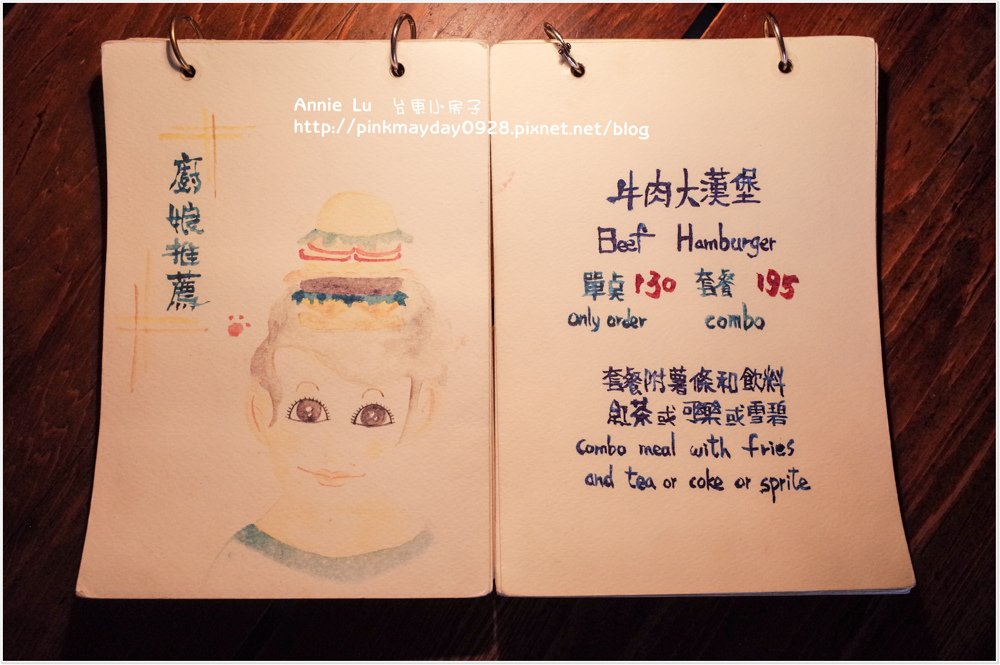 Annie Lu 台東小房子
http://pinkmayday0928.pixnet.net/blog
廚娘推薦
牛肉大漢堡
Beef Hamburger
單点 130 套餐 195
only order combo
套餐附薯條和飲料
紅茶或可樂或雪碧
combo meal with fries
and tea or coke or sprite